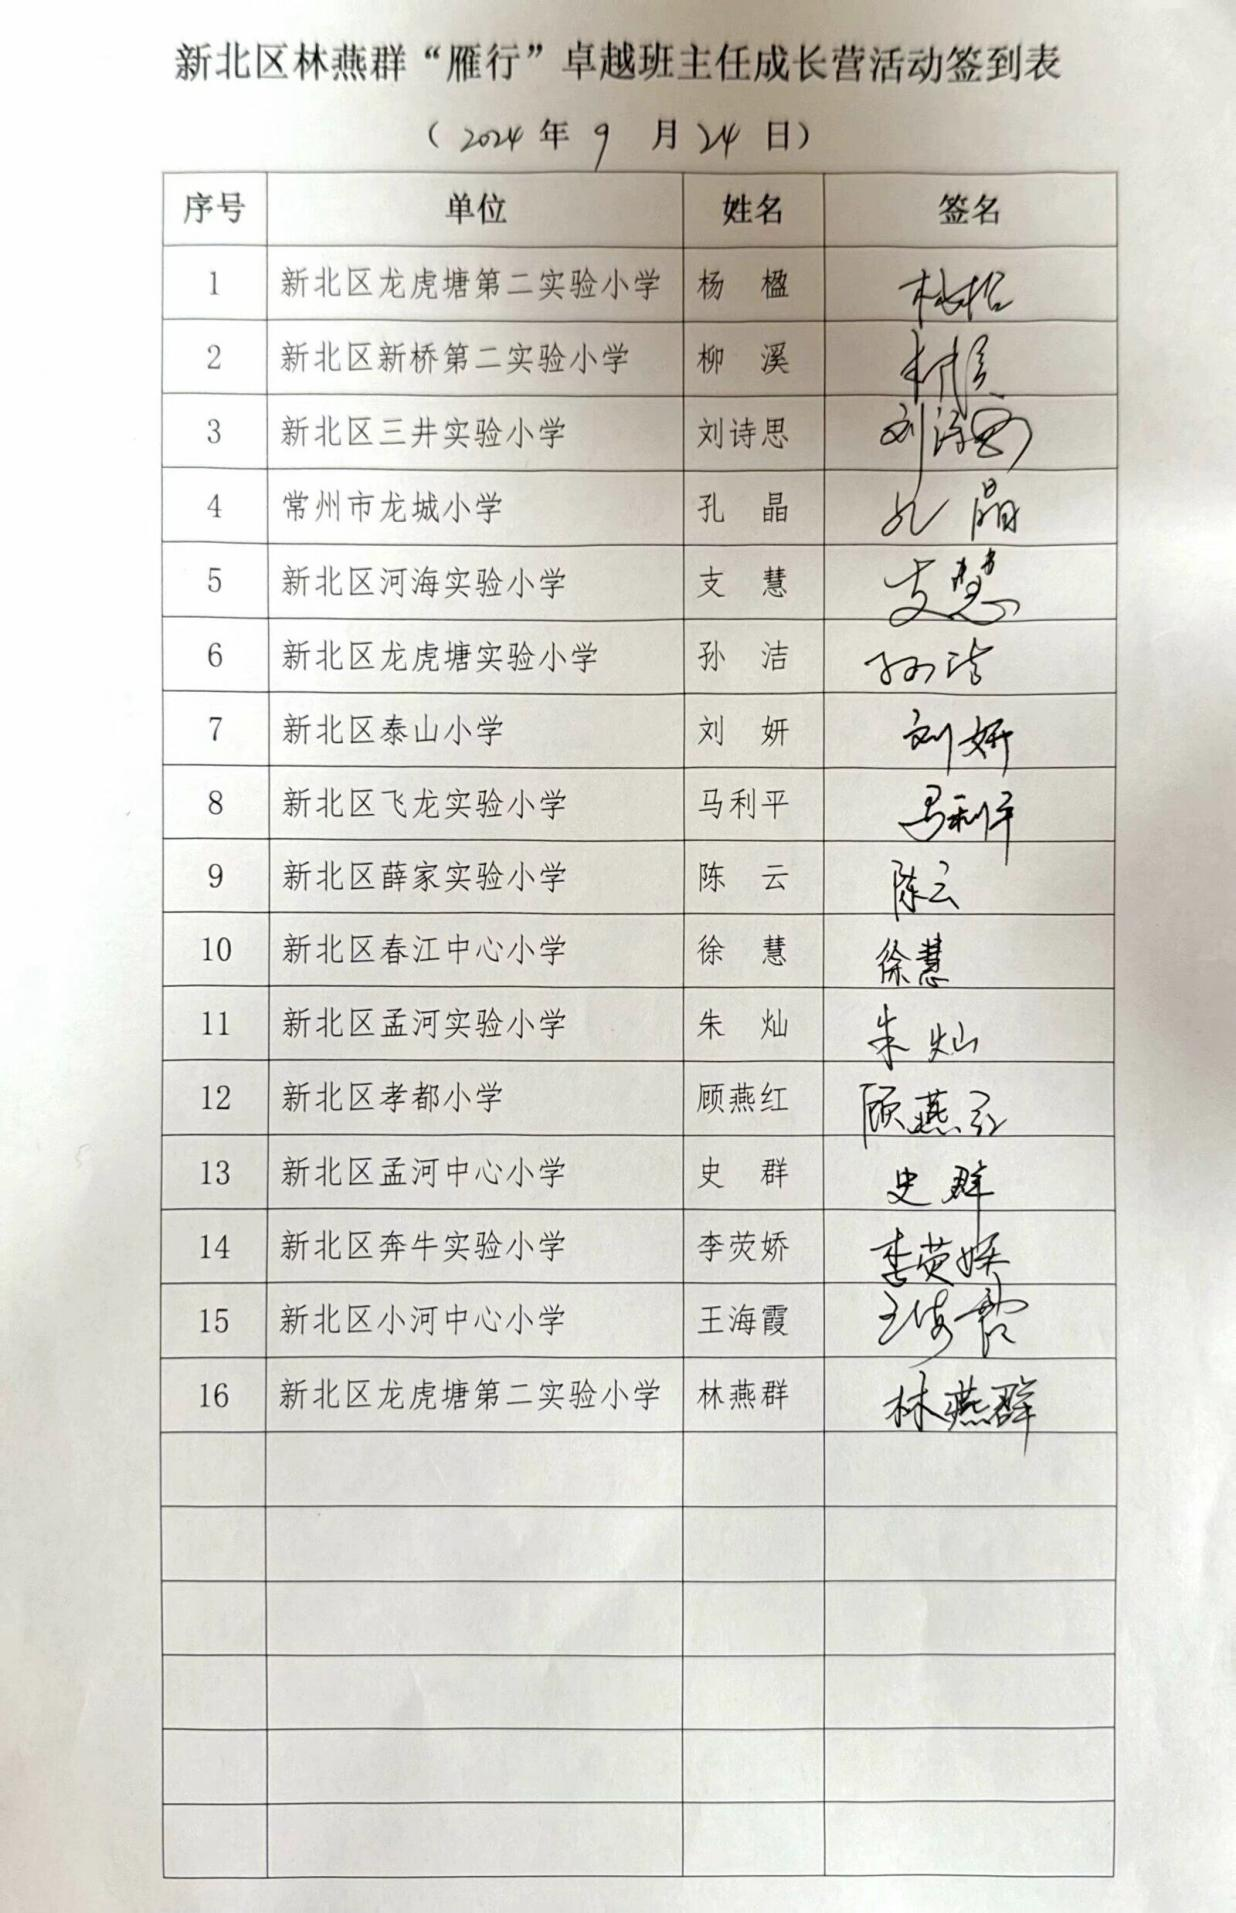 新北区林燕群“雁行”卓越班主任成长营活动签到表
（2024年9月24日）
序号 单位 姓名 签名
1 新北区龙虎塘第二实验小学 杨楹
2 新北区新桥第二实验小学 柳溪
3 新北区三井实验小学 刘诗思 刘诗思
4 常州市龙城小学 孔晶 孔晶
5 新北区河海实验小学 支慧 支慧
6 新北区龙虎塘实验小学 孙洁 孙洁
7 新北区泰山小学 刘妍 刘妍
8 新北区飞龙实验小学 马利平 马利平
9 新北区薛家实验小学 陈云 陈云
10 新北区春江中心小学 徐慧 徐慧
11 新北区孟河实验小学 朱灿 朱灿
12 新北区孝都小学 顾燕红 顾燕红
13 新北区孟河中心小学 史群 史群
14 新北区奔牛实验小学 李荧娇 李荧娇
15 新北区小河中心小学 王海霞 王海霞
16 新北区龙虎塘第二实验小学 林燕群 林燕群